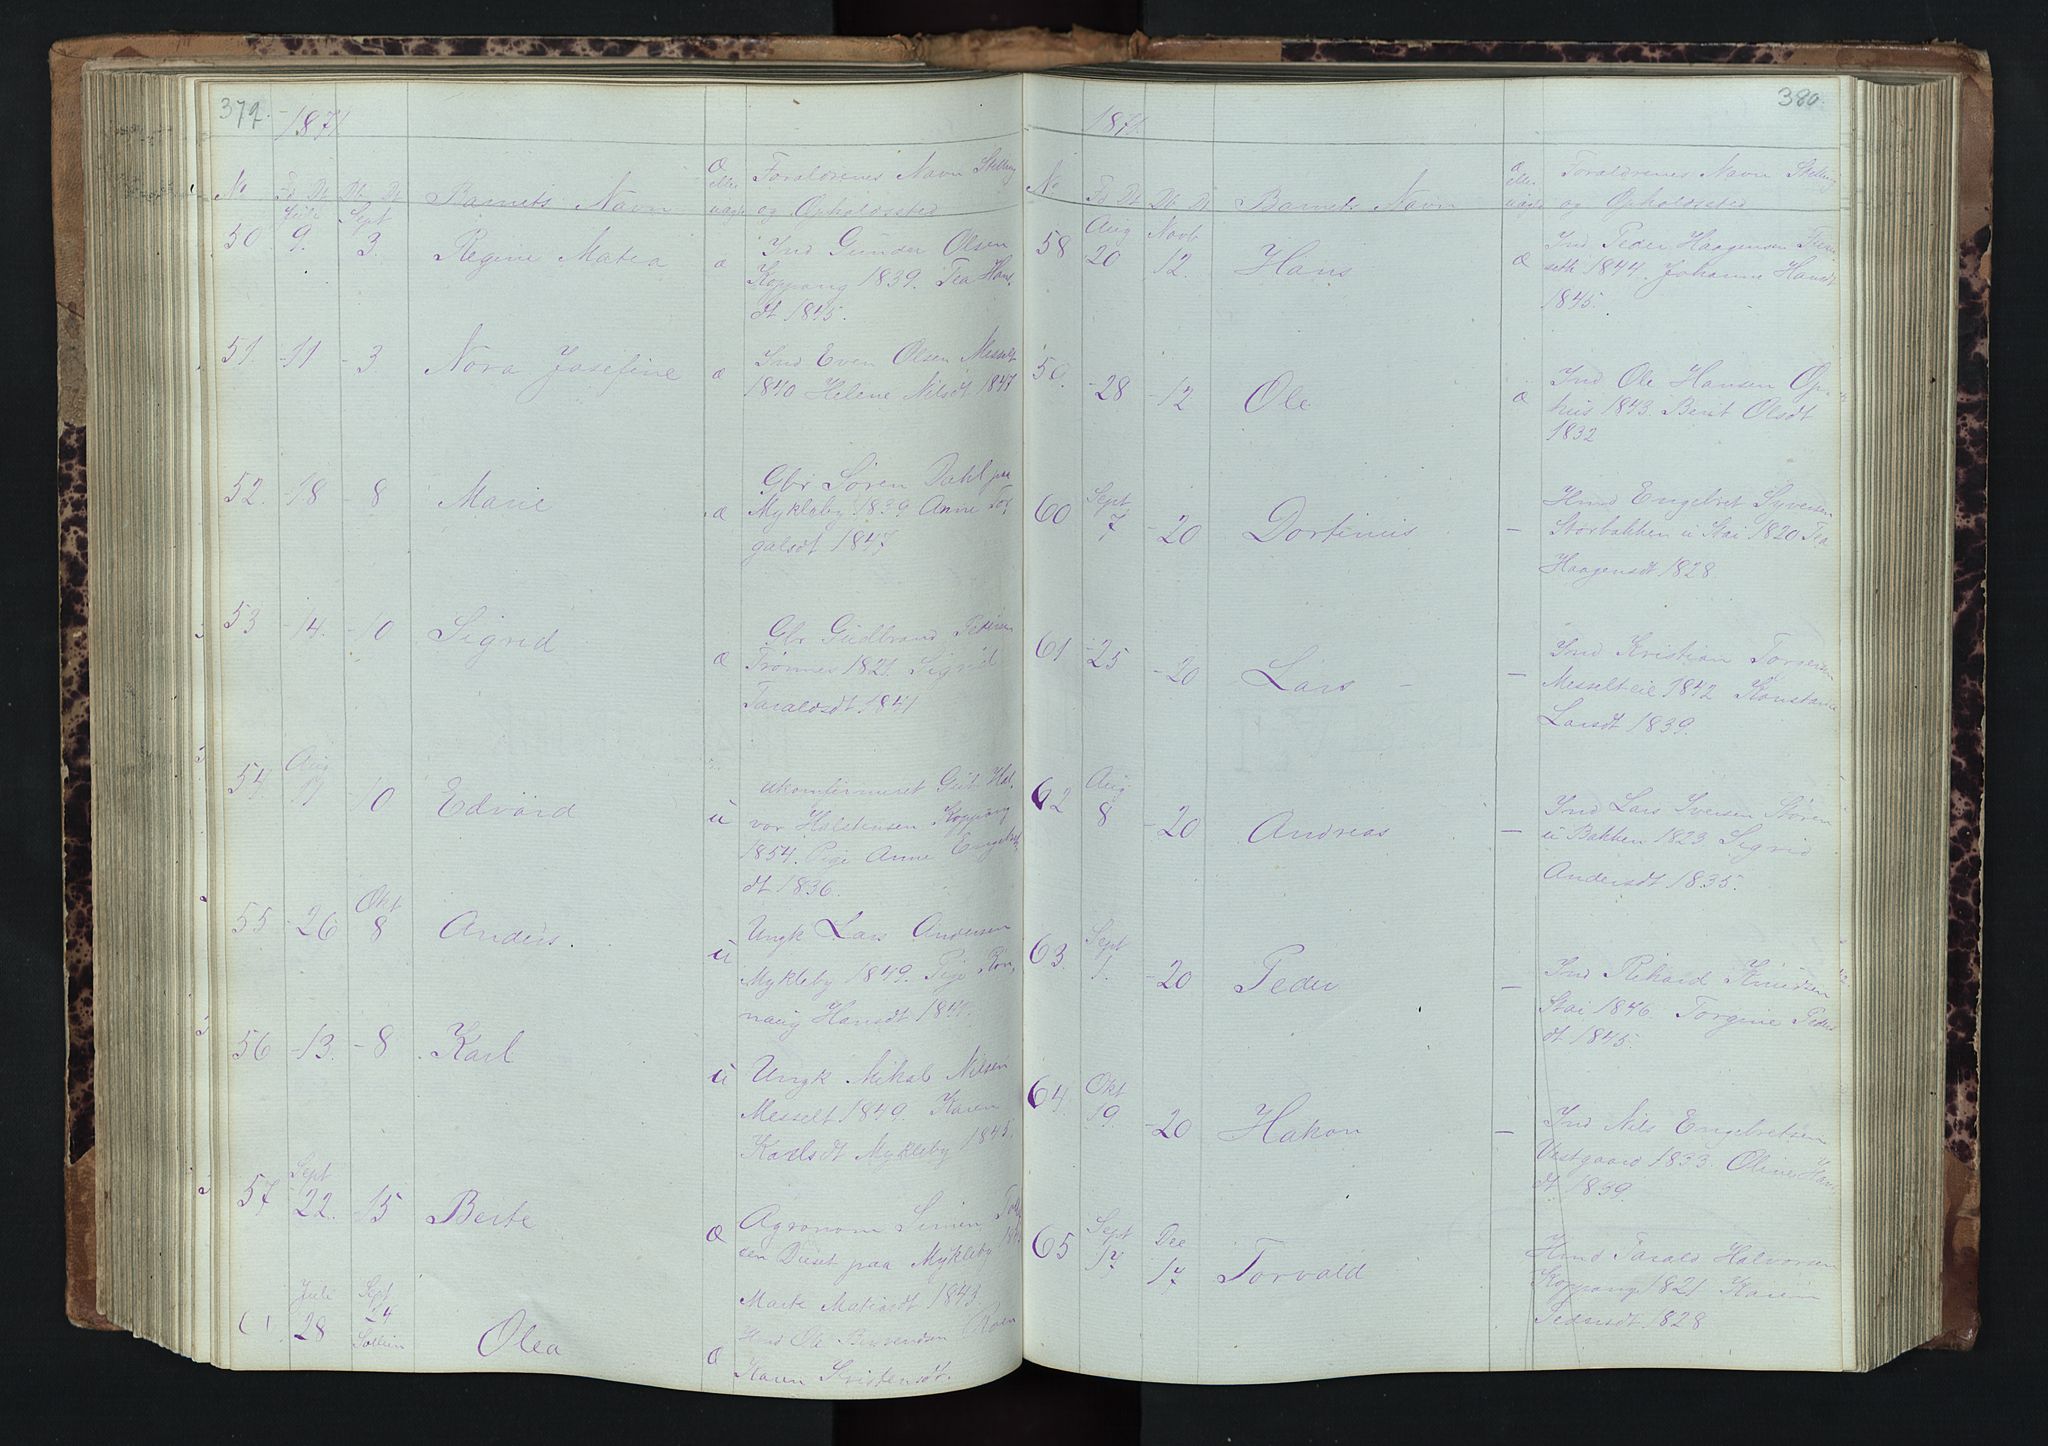 379.
1871
No
Fd Dt
Db Dt
Barnets Navn
Æ eller uægte
Forældrenes Navn Stilling
og Opholdssted
Juli Sept
50. 9. 3. Regine Matea æ Ind Gunder Olsen
Koppang 1839. Tea Hans
dt 1845.
51. -11 -3 Nora Josefine æ Ind Even Olsen Messelt
1840 Helene Nilsdt 1847
52. -18 -8 Marie æ Gbr Søren Dahl paa
Mykleby 1839. Anne Tor
galsdt 1847
53 -14. -10 Sigrid æ Gbr Gudbrand Pedersen
Trønnes 1821. Sigrid
Taraldsdt 1841
Aug
54. 11 -10 Edvard u ukonfirmeret Gut Hal
vor Halstensen Koppang
1854. Pige Anne Engebrets
dt 1836.
Okt
55 -26 8 Anders. u Ungk Lars Andersen
Mykleby 1849. Pige Ron
naug Hansdt
56 -13. -8 Karl u Ungk Mikal Nilsen
Messelt 1849. Karen
Karlsdt Mykleby 1845.
Sept
57. 22. -15 Berte Æ Agronom Simen
sen paa Mykleby
Marte Matiasdt 1843.
Juli Sept
28 24 Sollien Olea Æ
Karen Kristensdt.
380.
1871.
No
Fd Dt
Db Dt
Barnets Navn
Æ eller uægte
Forældrenes Navn Stilling
og Opholdssted
Aug Novb
58 20 12. Hans æ Ind Peder Haagensen
seth 1844. Johanne Hansdt
1845.
59. -28 -12 Ole æ Ind Ole Hansen Op
hus 1843. Berit Olsdt
1832
Sept
60 7, -20 Dortinus - Hmd Engebret Syversen
Storbakken u Stai 1820 Tea
Haagensdt 1828.
61 -25 -20 Lars - - Ind Kristian Torgersen
Messelteie 1842 Konstance
Larsdt 1839.
Aug
62 8 -20 Andreas - Ind Lars Iversen Støren
u Bakken 1823 Sigrid
Andersdt 1835.
Sept
63. 1. -20 Peder - Ind Rikard Knudsen
Stai 1846. Torgine Peders
dt 1845.
Okt
64. 19. -20 Hakon - Ind Nils Engebretsen
Vestgaard 1833. Oline Hans
dt. 1839.
Sept Dec
65 17, 17, Torvald Hmd Tarald Halvorsen
Koppang 1821 Karen
Pedersdt 1828